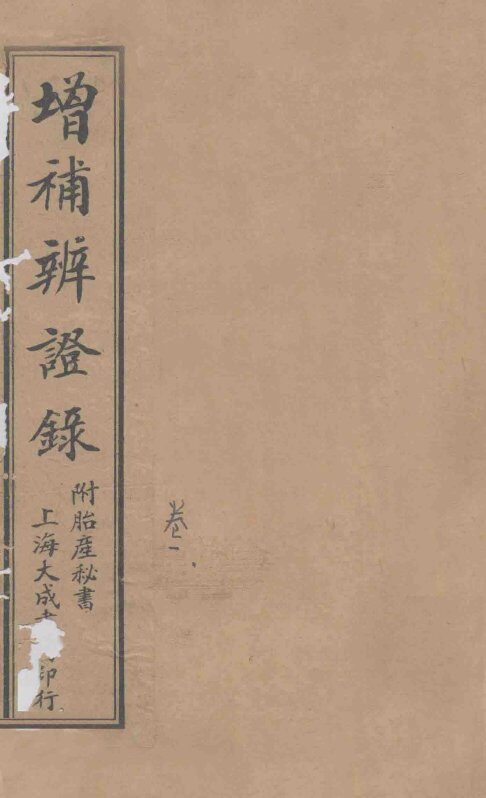 增補辨證錄
附胎產秘書
上海大成書 印行
卷一